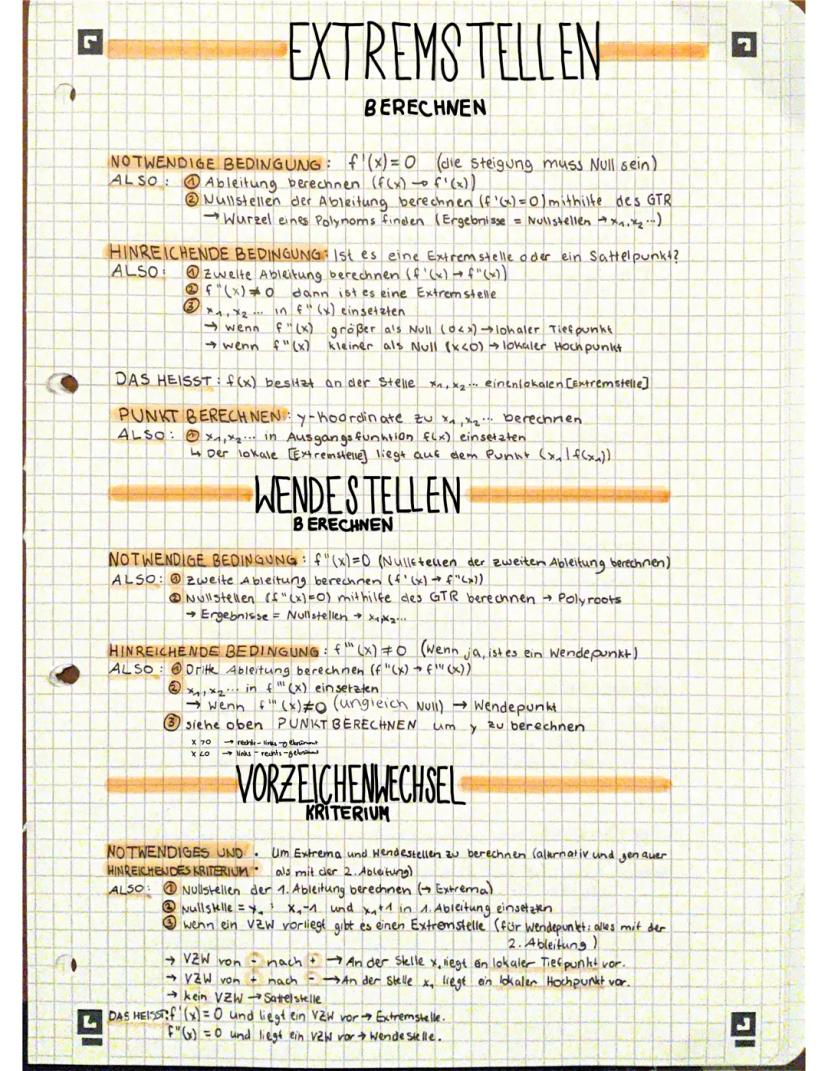 EXTREMSTELLEN
BERECHNEN
NOTWENDIGE BEDINGUNG: f'(x)=0 (die Steigung muss Null sein)
ALSO: ① Ableitung berechnen (f(x) → f'(x))
② Nullstellen der Ableitung berechnen (f'(x)=0) mithilfe des GTR
→ Wurzel eines Polynoms finden (Ergebnisse = Nullstellen → x₁,x₂...)
HINREICHENDE BEDINGUNG: Ist es eine Extremstelle oder ein Sattelpunkt?
ALSO: ① zweite Ableitung berechnen (f'(x) → f"(x))
② f"(x) ≠ 0 dann ist es eine Extremstelle
③ x₁, x₂... in f"(x) einsetzten
→ wenn f"(x) größer als Null (0<x) → lokaler Tiefpunkt
→ wenn f"(x) kleiner als Null (x<0) → lokaler Hochpunkt
DAS HEISST: f(x) besitzt an der Stelle x₁, x₂... einen lokalen [Extremstelle]
PUNKT BERECHNEN: y-Koordinate zu x₁, x₂... berechnen
ALSO: ① x₁, x₂... in Ausgangsfunktion f(x) einsetzten
↳ Der lokale [Extremstelle] liegt auf dem Punkt (x₁|f(x₁))
WENDESTELLEN
BERECHNEN
NOTWENDIGE BEDINGUNG: f"(x)=0 (Nullstellen der zweiten Ableitung berechnen)
ALSO: ① zweite Ableitung berechnen (f'(x) → f"(x))
② Nullstellen (f"(x)=0) mithilfe des GTR berechnen → Polyroots
→ Ergebnisse = Nullstellen → x₁,x₂...
HINREICHENDE BEDINGUNG: f'''(x) ≠ 0 (wenn ja, ist es ein Wendepunkt)
ALSO: ① Dritte Ableitung berechnen (f"(x) → f'''(x))
② x₁, x₂... in f'''(x) einsetzten
→ wenn f'''(x)≠0 (ungleich Null) → Wendepunkt
③ siehe oben PUNKT BERECHNEN um y zu berechnen
x>0 → rechts-links-gekrümmt
x<0 → links-rechts-gekrümmt
VORZEICHENWECHSEL
KRITERIUM
NOTWENDIGES UND HINREICHENDES KRITERIUM: Um Extrema und Wendestellen zu berechnen (alternativ und genauer
als mit der 2. Ableitung)
ALSO: ① Nullstellen der 1. Ableitung berechnen (→ Extrema)
② Nullstelle = x₁ ; x₁-1 und x₁+1 in 1. Ableitung einsetzten
③ wenn ein VZW vorliegt gibt es einen Extremstelle (für Wendepunkt: alles mit der
2. Ableitung)
→ VZW von - nach + → An der Stelle x₁ liegt ein lokaler Tiefpunkt vor.
→ VZW von + nach - → An der Stelle x₁ liegt ein lokaler Hochpunkt vor.
→ kein VZW → Sattelstelle
DAS HEISST: f'(x) = 0 und liegt ein VZW vor → Extremstelle.
f"(x) = 0 und liegt ein VZW vor → Wendestelle.